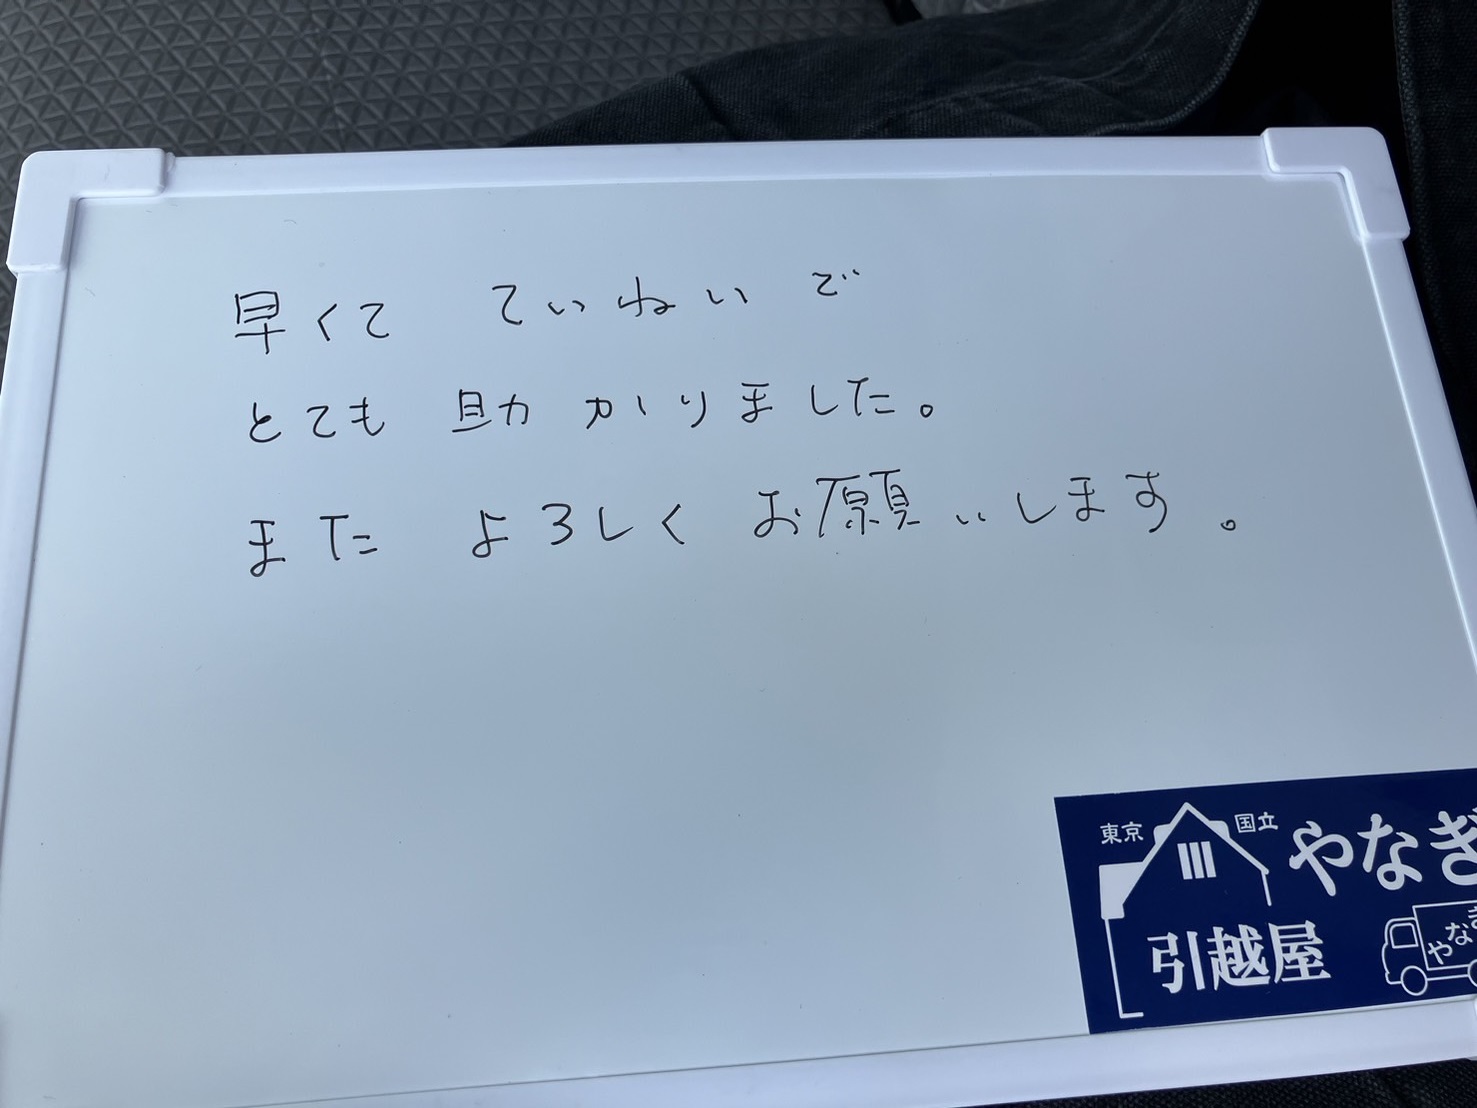 早くて ていねいで
とても 助かりました。
また よろしく お願いします。
東京 国立 やなぎ
引越屋
やなぎ